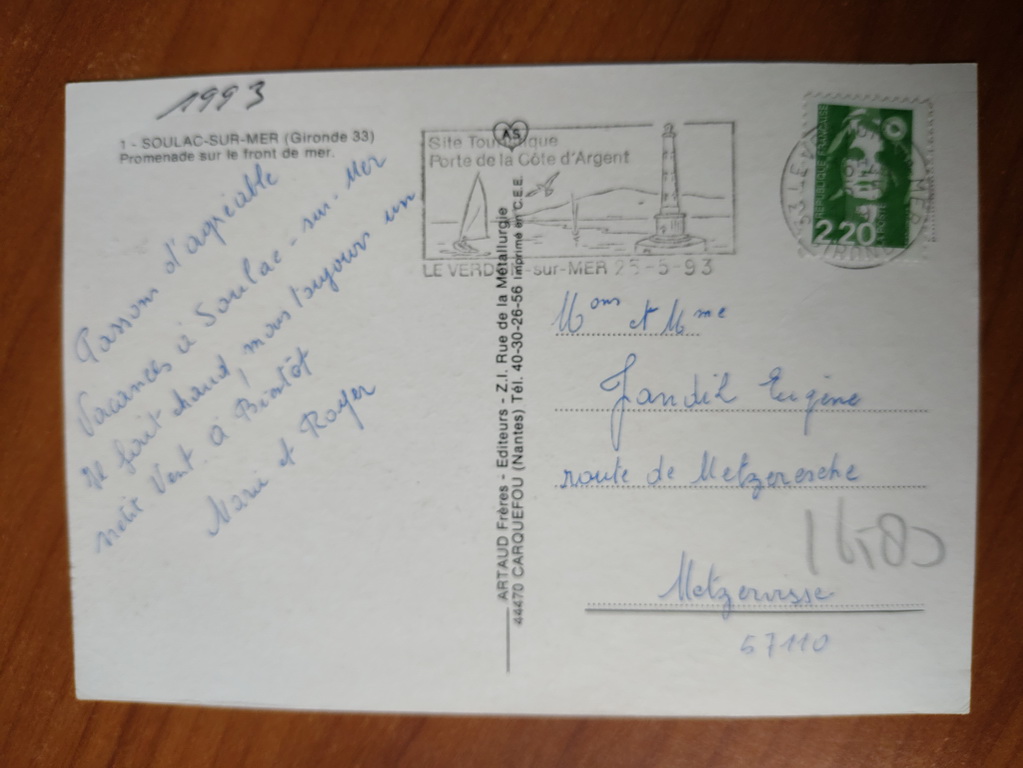 1993
1 - SOULAC-SUR-MER (Gironde 33)
Promenade sur le front de mer.
Passons d'agréable
Vacances à Soulac-sur-Mer
Il fait chaud, mais toujours un
petit Vent. à Bientôt
Marie et Roger
AS
Site Touristique
Porte de la Côte d'Argent
LE VERDON-sur-MER 25-5-93
ARTAUD Frères - Editeurs - Z.I. Rue de la Métallurgie
44470 CARQUEFOU (Nantes) Tél. 40-30-26-56 Imprimé en C.E.E.
REPUBLIQUE FRANCAISE
2,20
Mons et Mme
Jandil Eugène
route de Metzeresche
Metzervisse
57110